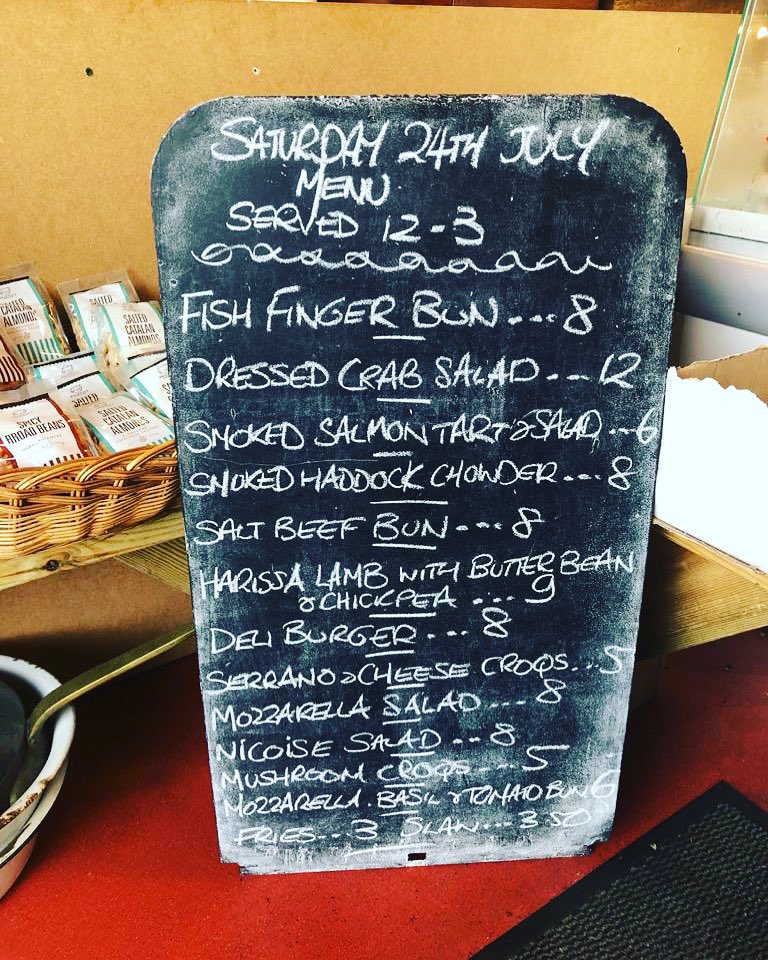 SATURDAY 24TH JULY
MENU
SERVED 12-3
FISH FINGER BUN --- 8
DRESSED CRAB SALAD --- 12
SMOKED SALMON TART & SALAD --- 6
SMOKED HADDOCK CHOWDER --- 8
SALT BEEF BUN --- 8
HARISSA LAMB WITH BUTTER BEAN
& CHICKPEA --- 9
DELI BURGER --- 8
SERRANO & CHEESE CROQS... 5
MOZZARELLA SALAD --- 8
NICOISE SALAD -- 8
MUSHROOM CROQS --- 5
MOZZARELLA. BASIL & TOMATO BUN 6
FRIES... 3 SLAW... 3 50
SALTED
CATALAN
ALMONDS
SALTED
SALTED
CATALAN
ALMONDS
SALTED
SPICY
BROAD BEANS
SALTED
CATALAN
ALMONDS